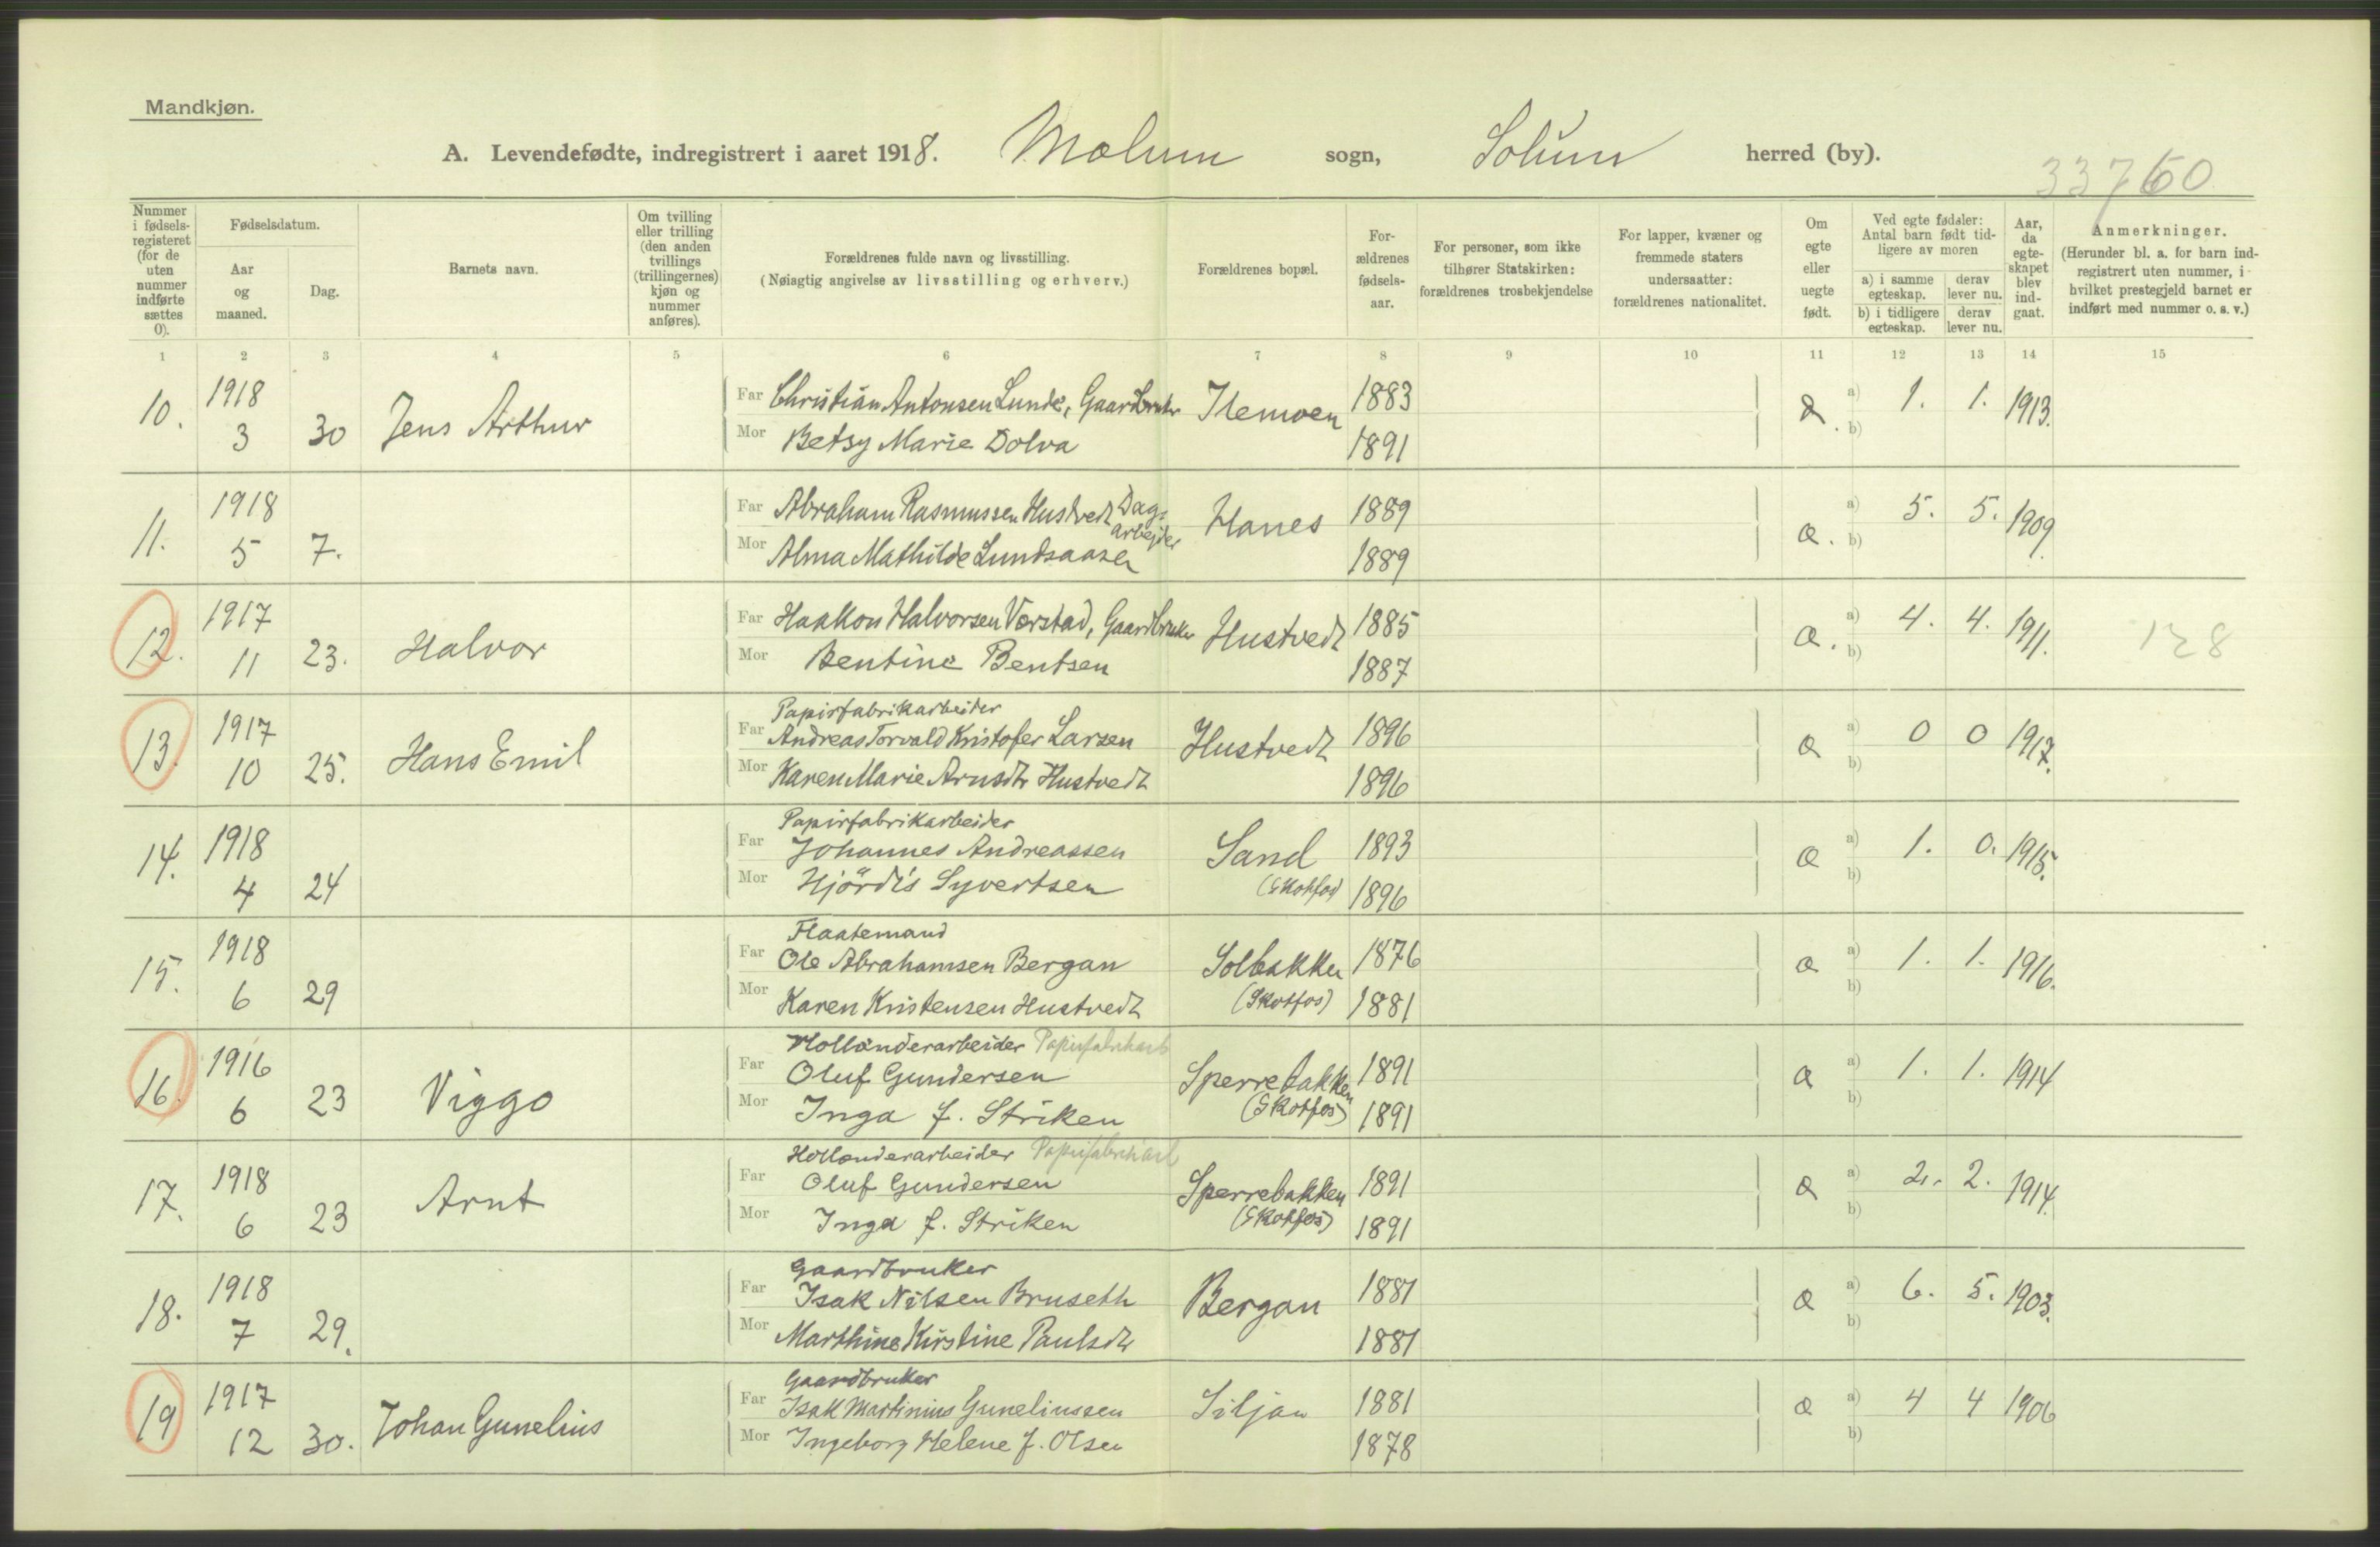 Mandkjøn.
A. Levendefødte, indregistrert i aaret 1918. Mælum sogn, Solum herred (by).
33760
Nummer i fødsels-registeret (for de uten nummer indførte sættes 0).
Fødselsdatum.
Aar og maaned.
Dag.
Barnets navn.
Om tvilling eller trilling (den anden tvillings (trillingernes) kjøn og nummer anføres).
Forældrenes fulde navn og livsstilling.
(Nøiagtig angivelse av livsstilling og erhverv.)
Forældrenes bopæl.
For-ældrenes fødsels-aar.
For personer, som ikke tilhører Statskirken: forældrenes trosbekjendelse
For lapper, kvæner og fremmede staters undersaatter: forældrenes nationalitet.
Om egte eller uegte født.
Ved egte fødsler: Antal barn født tid-ligere av moren
a) i samme egteskap. derav lever nu.
b) i tidligere egteskap. derav lever nu.
Aar, da egte-skapet blev ind-gaat.
Anmerkninger.
(Herunder bl. a. for barn ind-registrert uten nummer, i hvilket prestegjeld barnet er indført med nummer o. s. v.)
1 2 3 4 5 6 7 8 9 10 11 12 13 14 15
10. 1918 3 30 Jens Arthur
Far Christian Antonsen Lunde, Gaardbruker
Mor Betsy Marie Dolva
1883 1891 a) 1. 1. 1913. b)
11. 1918 5 7.
Far Abraham Rasmussen Hustvedt Dagarbejder
Mor Alma Mathilde Lundsaasen
Hanes 1889 1889 æ. a) 5. 5. 1909. b)
12. 1917 11 23. Halvor
Far Haakon Halvorsen Værstad, Gaardbruker
Mor Bentine Bentsen
Hustvedt 1885 1887 æ. a) 4. 4. 1911. b) 128
13. 1917 10 25. Hans Emil
Papirfabrikarbeider
Far Andreas Torvald Kristofer Larsen
Mor Karen Marie Arnsdtr Hustvedt
Hustvedt 1896 1896 æ a) 0 0 1917. b)
14. 1918 4 24
Papirfabrikarbeider
Far Johannes Andreassen
Mor Hjördis Syvertsen
Sand (Skotfos) 1893 1896 æ a) 1. 0. 1915. b)
15. 1918 6 29
Flaatemand
Far Ole Abrahamsen Bergan
Mor Karen Kristensen Hustvedt
Solbakken (Skotfos) 1876 1881 æ a) 1. 1. 1916. b)
16. 1916 6 23 Viggo
Hollænderarbeider Papirfabrikarb
Far Oluf Gundersen
Mor Inga f. Striken
Sperrebakken (Skotfos) 1891 1891 æ a) 1. 1. 1914 b)
17. 1918 6 23 Arnt
Hollænderarbeider Papirfabrikarb
Far Oluf Gundersen
Mor Inga f. Striken
Sperrebakken (Skotfos) 1891 1891 æ a) 2. 2. 1914. b)
18. 1918 7 29.
Gaardbruker
Far Isak Nilsen Bruseth
Mor Marthine Kirstine Paulsdtr
Bergan 1881 1881 æ a) 6. 5. 1903. b)
19 1917 12 30. Johan Gunelius
Gaardbruker
Far Isak Martinius Guneliussen
Mor Ingeborg Helene f. Olsen
Siljan 1881 1878 æ a) 4 4 1906 b)